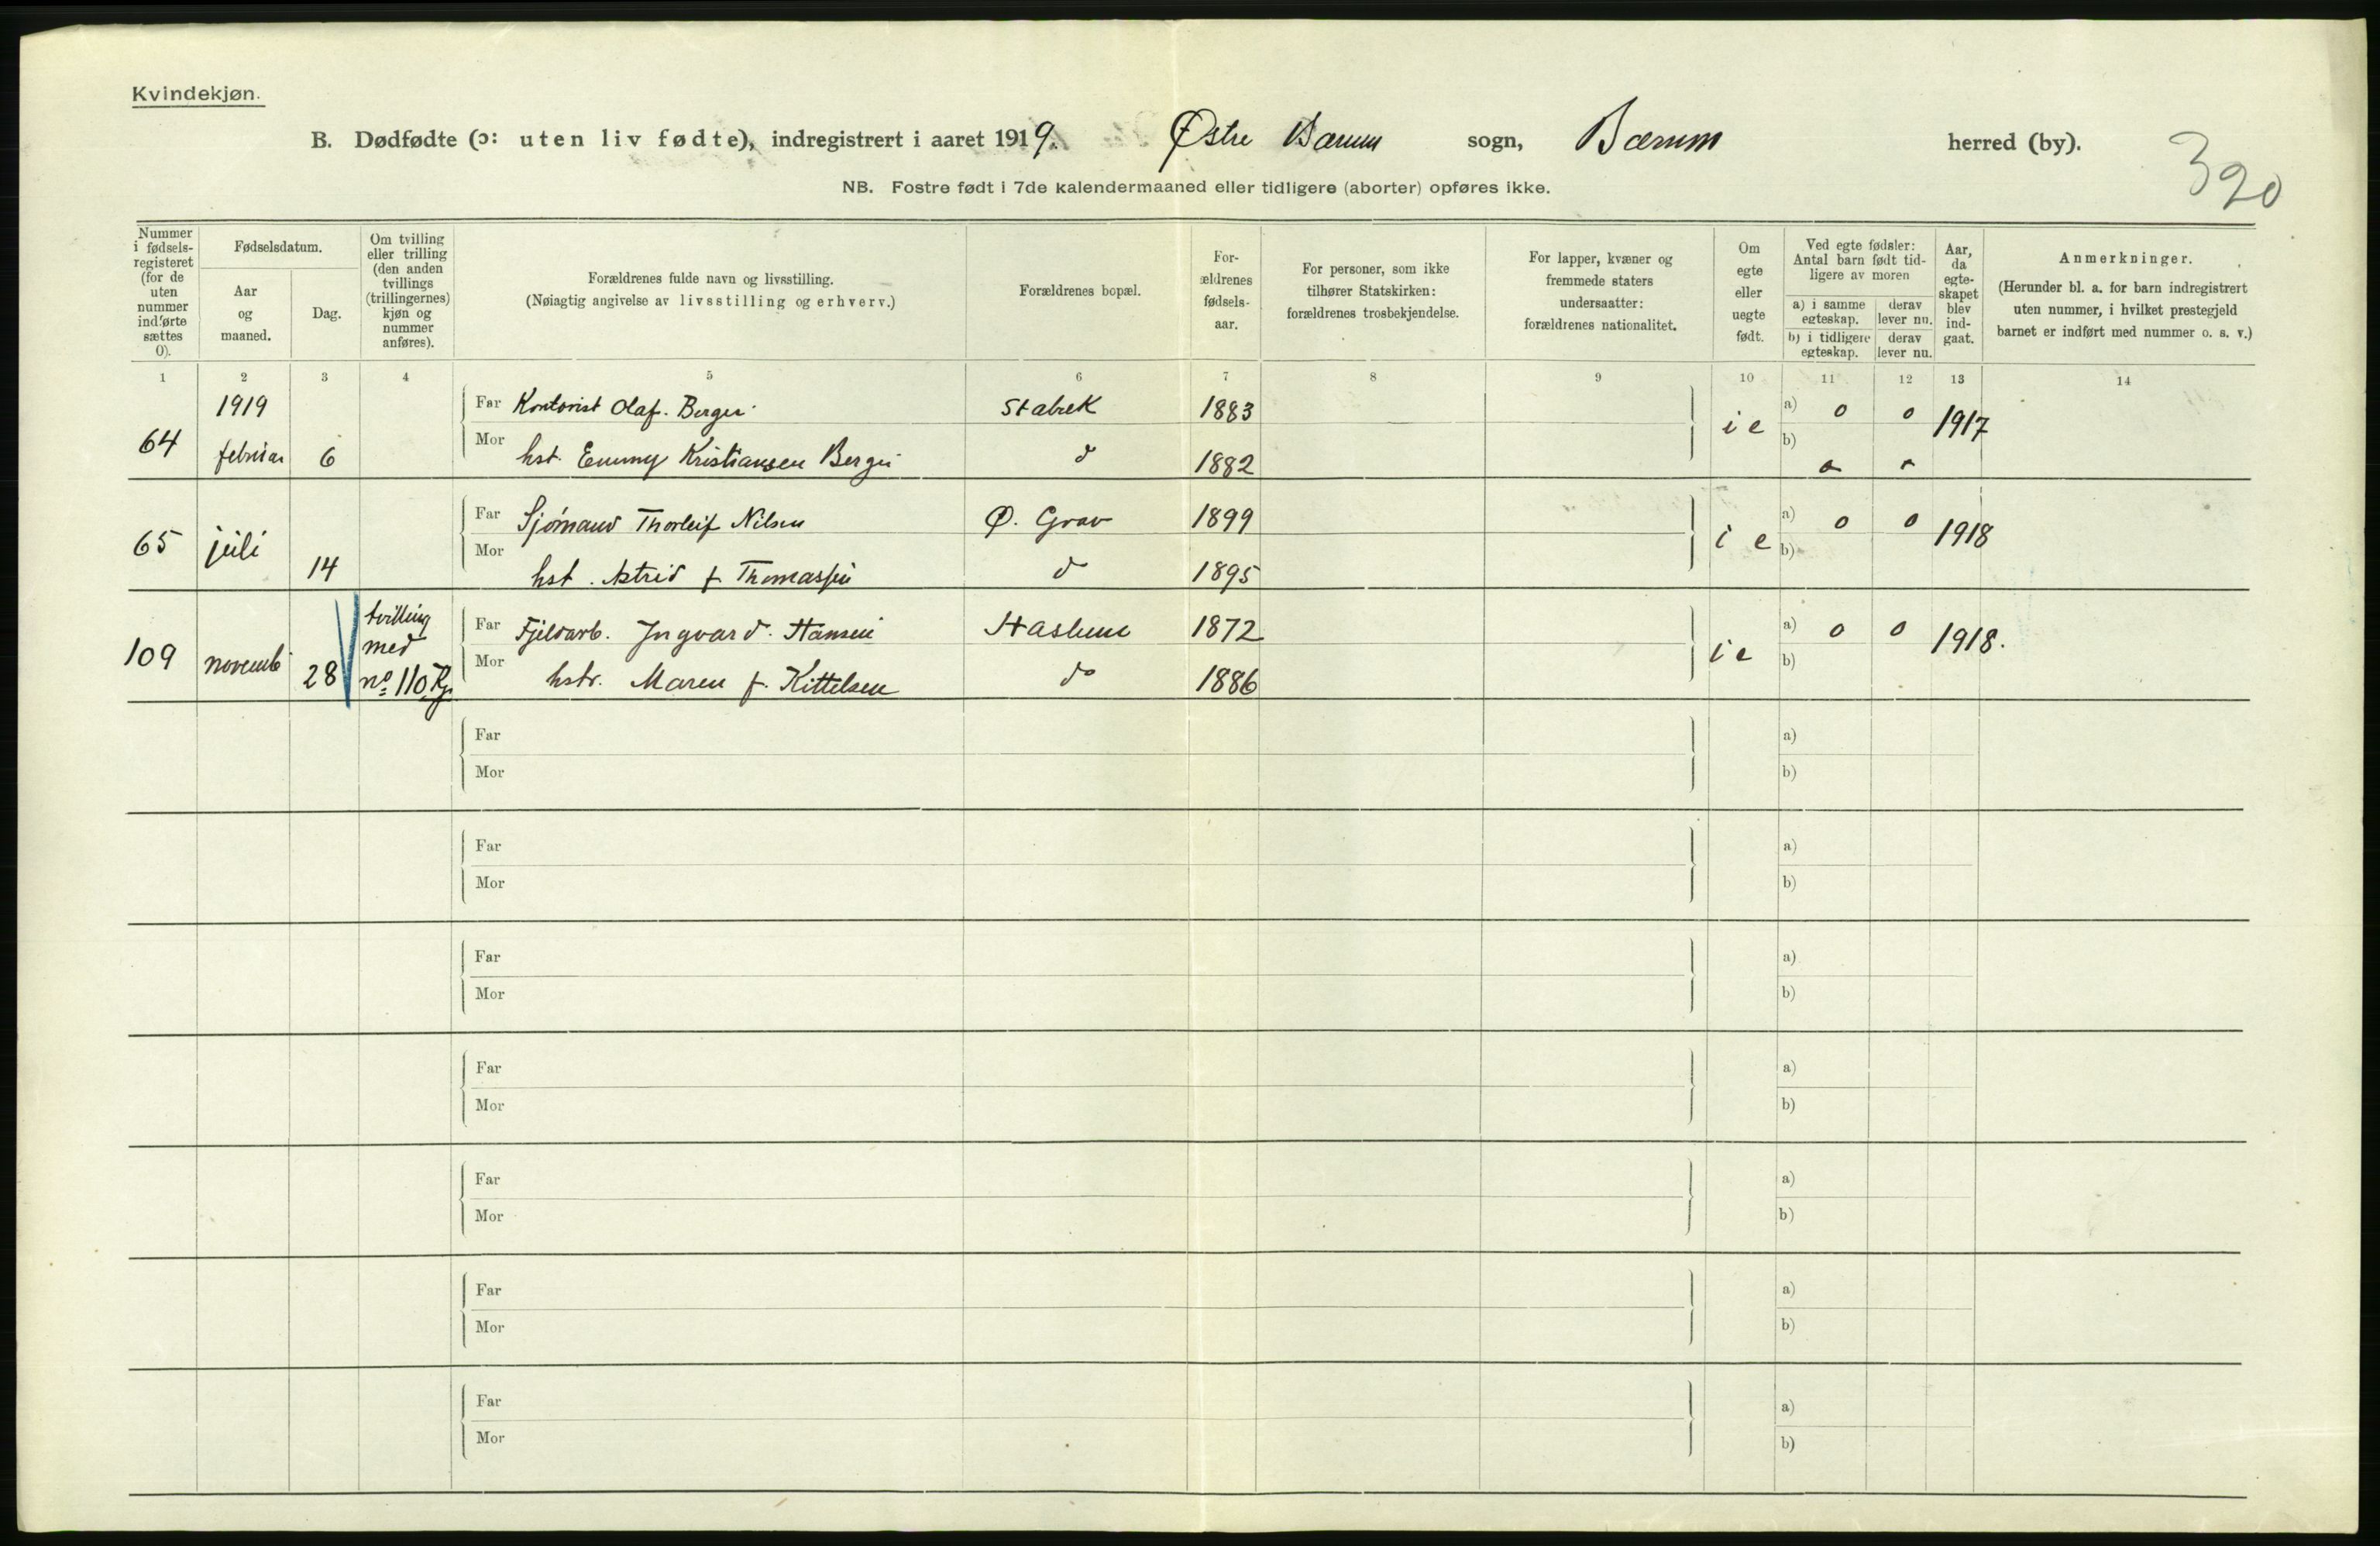 Kvindekjøn.
B. Dødfødte (ɔ: uten liv fødte), indregistrert i aaret 1919. Østre Bærum sogn, Bærum herred (by).
320
NB. Fostre født i 7de kalendermaaned eller tidligere (aborter) opføres ikke.
Nummer i fødsels-registeret (for de uten nummer indførte sættes 0).
Fødselsdatum.
Aar og maaned.
Dag.
Om tvilling eller trilling (den anden tvillings (trillingernes) kjøn og nummer anføres).
Forældrenes fulde navn og livsstilling.
(Nøiagtig angivelse av livsstilling og erhverv.)
Forældrenes bopæl.
For-ældrenes fødsels-aar.
For personer, som ikke tilhører Statskirken: forældrenes trosbekjendelse.
For lapper, kvæner og fremmede staters undersaatter: forældrenes nationalitet.
Om egte eller uegte født.
Ved egte fødsler: Antal barn født tid-ligere av moren
a) i samme egteskap. derav lever nu.
b) i tidligere egteskap. derav lever nu.
Aar, da egte-skapet blev ind-gaat.
Anmerkninger.
(Herunder bl. a. for barn indregistrert uten nummer, i hvilket prestegjeld barnet er indført med nummer o. s. v.)
1 2 3 4 5 6 7 8 9 10 11 12 13 14
1919 Far Kontorist Olaf. Berger Stabek 1883 a) 0 0
64 februar 6 Mor hst. Emmy Kristiansen Berger d 1882 i e b) 0 0 1917
Far Sjømand Thorleif Nilsen Ø. Grav 1899 a) 0 0
65 juli 14 Mor hst. Astrid f. Thomassen d 1895 i e b) 1918
tvilling med no 110, Far Fjeldarb. Ingvard. Hansen Haslum 1872 a) 0 0
109 novemb 28 Mor hstr. Maren f. Kittelsen do 1886 i e b) 1918.
Far a)
Mor b)
Far a)
Mor b)
Far a)
Mor b)
Far a)
Mor b)
Far a)
Mor b)
Far a)
Mor b)
Far a)
Mor b)